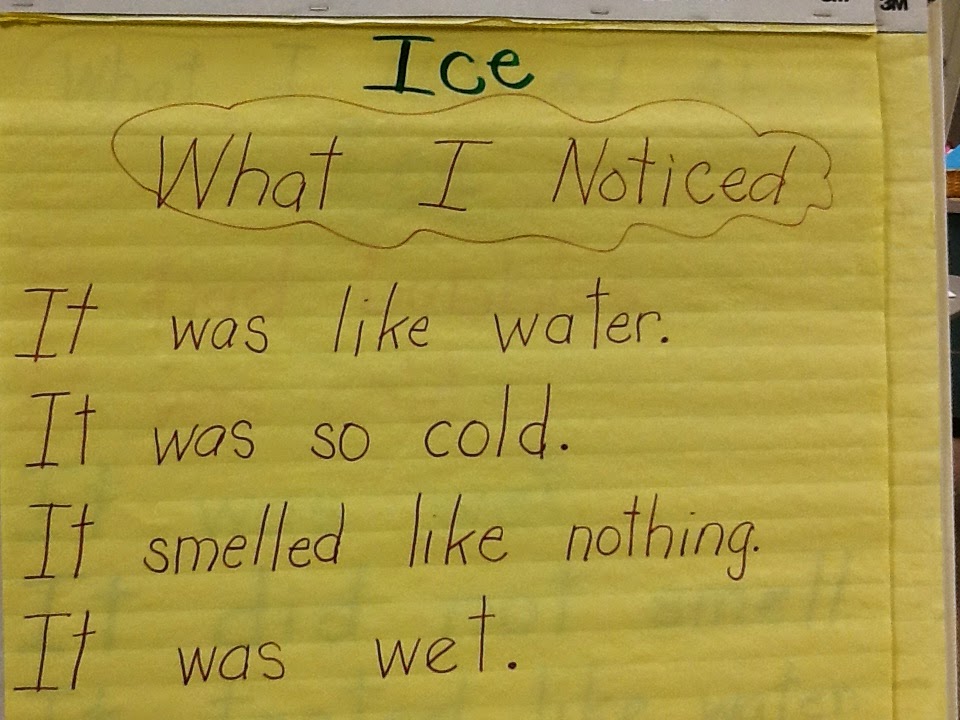 3M
Ice
What I Noticed
It was like water.
It was so cold.
It smelled like nothing.
It was wet.